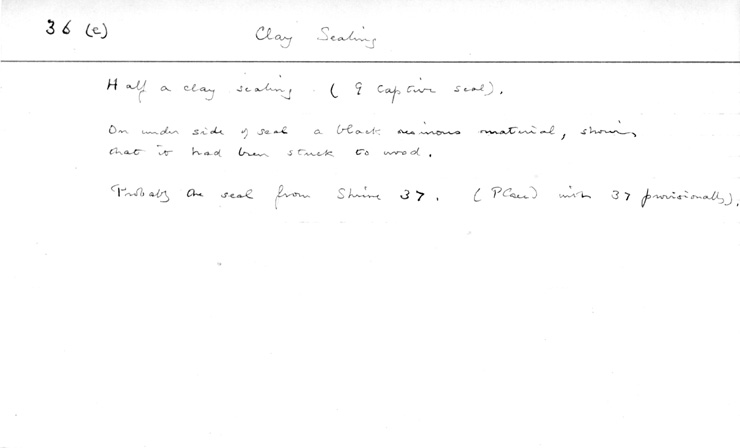 36 (c) Clay Sealing
Half a clay sealing. (9 captive seal).
On under side of seal a black resinous material, showing
that it had been stuck to wood.
Probably the seal from Shrine 37. (Placed with 37 provisionally).